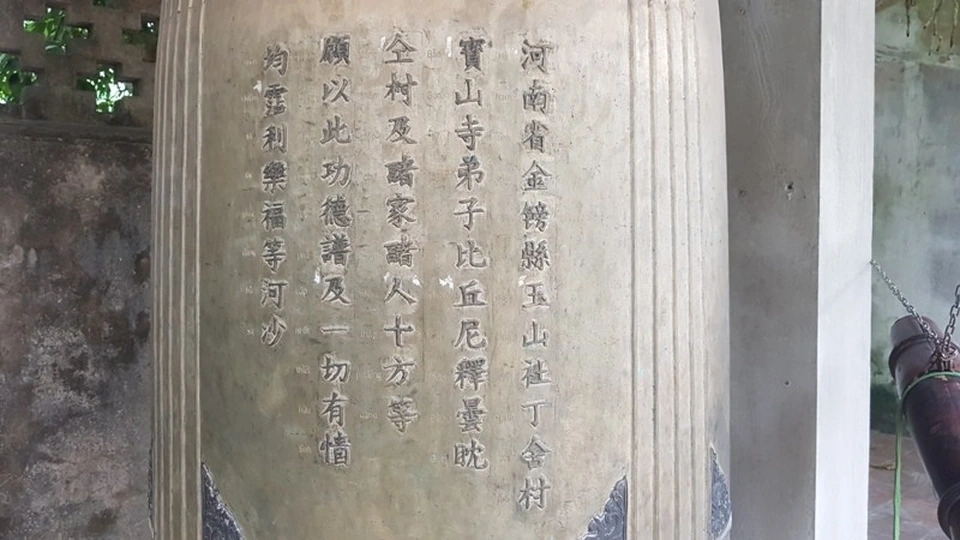 河南省金鎊縣玉山社丁舍村
寶山寺弟子比丘尼釋曇眈
仝村及諸家諸人十方等
願以此功德譜及一切有情
均霑利樂福等河沙